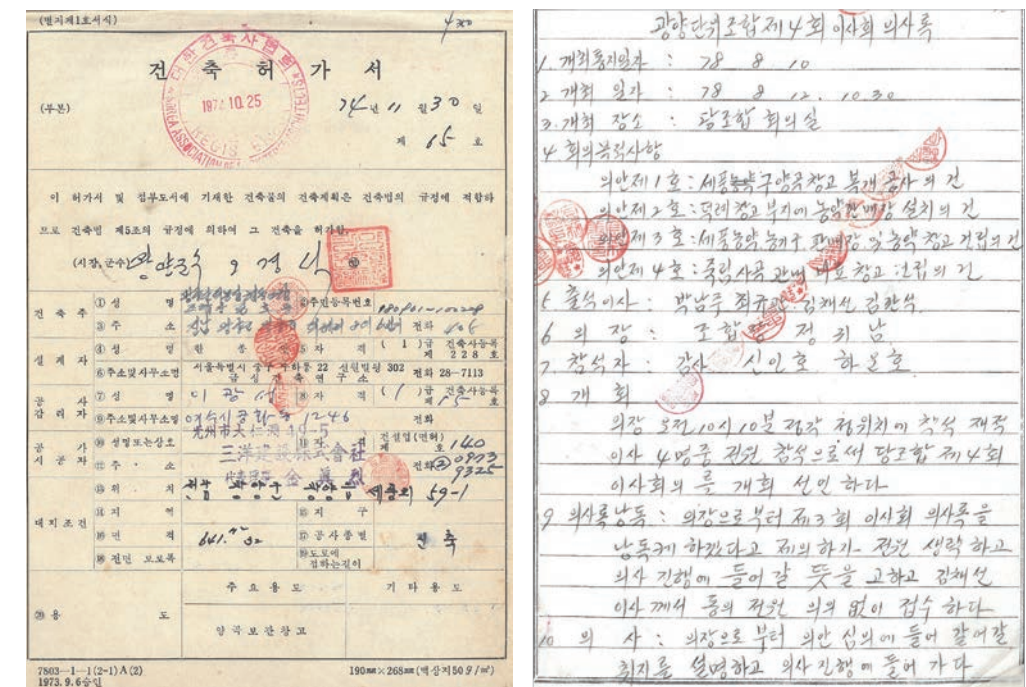 (별지제1호서식)
4-320
대한건축사협회
1974.10.25
KOREA ASSOCIATION OF
건축허가서
(부본)
74년 11월 30일
제 65 호
이 허가서 및 첨부도서에 기재한 건축물의 건축계획은 건축법의 규정에 적합하
므로 건축법 제5조의 규정에 의하여 그 건축을 허가함.
(시장,군수) 광양군수
건축주
① 성명
②주민등록번호
③ 주소
전화
설계자
④ 성명
⑤ 자격
( 1 )급 건축사등록
제 228 호
⑥주소및사무소명
서울특별시 중구
22 신원빌딩 302
전화 28-7113
공사
감리자
⑦ 성명
이 광
⑧ 자격
( 1 )급 건축사등록
제 호
⑨주소및사무소명
여수시 공화동 1246
전화
光州市大仁洞 19-5
공사
시공자
⑩ 성명또는상호
三洋建設株式會社
⑪ 자격
건설업(면허)
제 호 140
⑫ 주소
金
전화 ② 0973
9325
대지조건
⑬ 위치
전남 광양군 광양읍 세풍리 59-1
⑭ 지역
⑮ 지구
⑯ 면적
641.
⑰ 공사종별
신축
⑱ 전면 도로폭
⑲도로에
접하는길이
⑳용도
주요용도
기타용도
양곡보관창고
7803-1-1(2-1)A(2)
1973.9.6승인
190㎜×268㎜(백상지50g/㎡)
광양단위조합 제4회 이사회 의사록
1. 개최통지일자 : 78 8 10
2 개최 일자 : 78 8 12. 10.30
3. 개최 장소 : 당조합 회의실
4 회의목적사항
의안제1호 : 세풍농약구양곡창고 복개 공사의 건
의안제2호 : 덕례창고 부지에 농약판매장 설치의 건
의안제3호 : 세풍농약, 농기구, 판매장 및 농약 창고 건립의 건
의안제4호 : 죽림사곡 판매 비료창고 건립의 건
5 출석이사 : 박남주 최규 김채선 김관석
6 의 장 : 조합장 정귀남
7. 참석자 : 감사 신인호 하온호
8 개 회
의장 오전10시10분 정각 정위치에 착석 재적
이사 4명중 전원 참석으로써 당조합 제4회
이사회의를 개회 선언 하다
9 의사록낭독 : 의장으로부터 제3회 이사회 의사록을
낭독케 하겠다고 제의하자 전원 생략하고
의사 진행에 들어갈 뜻을 고하고 김채선
이사께서 동의 전원 의의 없이 접수 하다
10 의 사 : 의장으로부터 의안 심의에 들어 갈어갈
취지를 설명하고 의사진행에 들어 가다